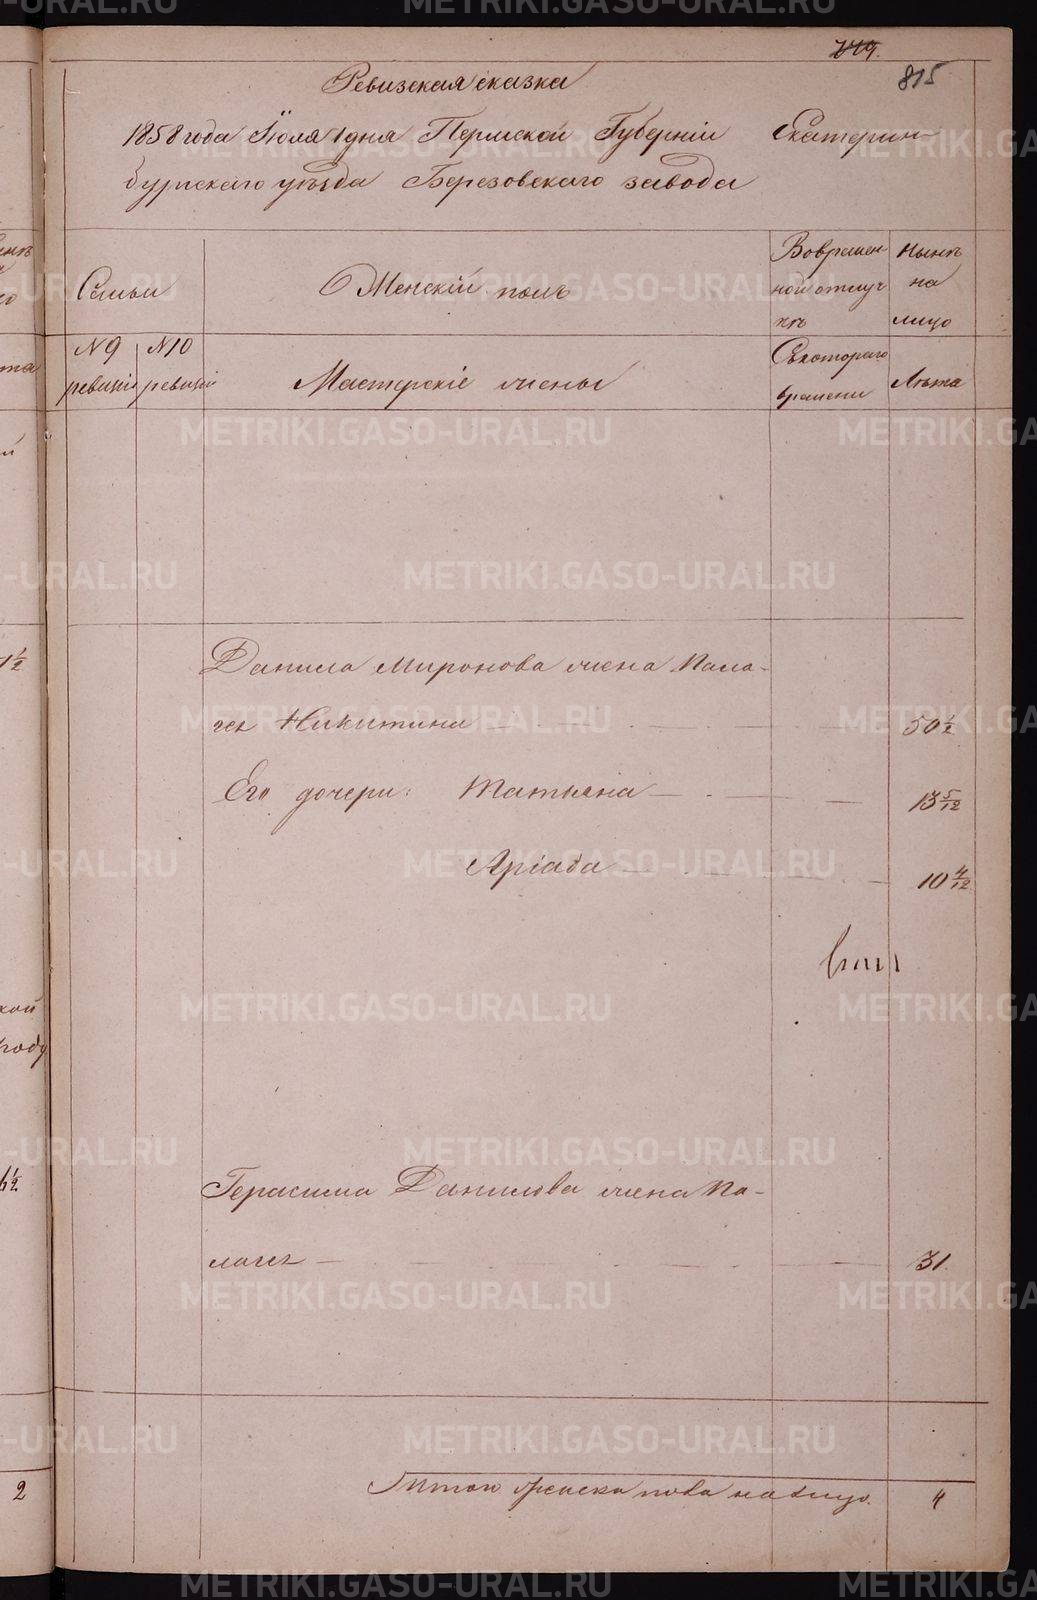 779.
815
Ревизская сказка
1858 года Июля 1 дня Пермской Губерніи Екатерин-
бургскаго уѣзда Березовскаго завода
Семьи
Женскій полъ
Вовремен-
ной отлуч-
кѣ
Нынѣ
на
лицо
№9
ревизіи
№10
ревизіи
Мастерскіе жены
Съкотораго
времени
Лѣта
Данила Миронова жена Пала-
гея Никитина 50 1/2
Его дочери: Татьяна 13 5/12
Аріада 10 4/12
Герасима Данилова жена Па-
лагея 31.
Итого женска пола на лицо. 4
1/2
2
METRIKI.GASO-URAL.RU